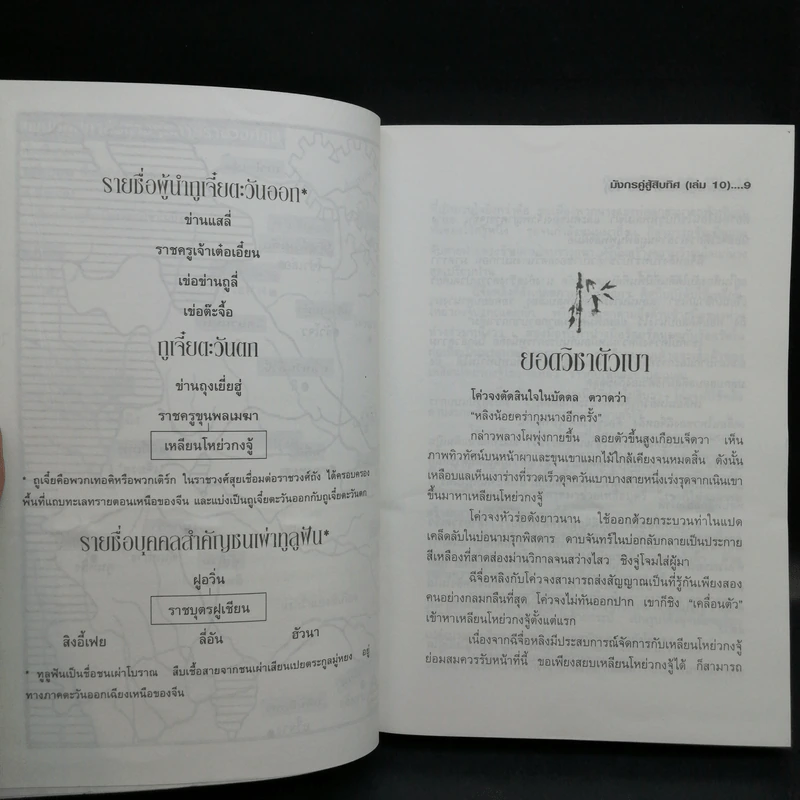 รายชื่อผู้นำทูเจี๋ยตะวันออก*
ข่านแสลี่
ราชครูเจ้าเต๋อเอี้ยน
เข่อข่านถูลี่
เข่อต๊ะจื้อ
ทูเจี๋ยตะวันตก
ข่านถุงเยี่ยฮู่
ราชครูขุนพลเมฆา
เหลียนโหย่วกงจู้
* ถูเจี๋ยคือพวกเทอคิหรือพวกเติร์ก ในราชวงศ์สุยเชื่อมต่อราชวงศ์ถัง ได้ครอบครอง
พื้นที่แถบทะเลทรายตอนเหนือของจีน และแบ่งเป็นถูเจี๋ยตะวันออกกับถูเจี๋ยตะวันตก
รายชื่อบุคคลสำคัญชนเผ่าทูลูฟัน*
ฝูอวิ่น
ราชบุตรฝูเชียน
สิงอี้เฟย ลี่อัน ฮัวนา
* ทูลูฟันเป็นชื่อชนเผ่าโบราณ สืบเชื้อสายจากชนเผ่าเสียนเปยตระกูลมู่หยง อยู่
ทางภาคตะวันออกเฉียงเหนือของจีน
มังกรคู่สู้สิบทิศ (เล่ม 10)....9
ยอดวิชาตัวเบา
โค่วจงตัดสินใจในบัดดล ตวาดว่า
"หลิงน้อยคร่ากุมนางอีกครั้ง"
กล่าวพลางโผพุ่งกายขึ้น ลอยตัวขึ้นสูงเกือบเจ็ดวา เห็น
ภาพทิวทัศน์บนหน้าผาและขุนเขาแมกไม้ใกล้เคียงจนหมดสิ้น ดังนั้น
เหลือบแลเห็นเงาร่างที่รวดเร็วดุจควันเบาบางสายหนึ่งเร่งรุดจากเนินเขา
ขึ้นมาหาเหลียนโหย่วกงจู้
โค่วจงหัวร่อดังยาวนาน ใช้ออกด้วยกระบวนท่าในแปด
เคล็ดลับในบ่อนามรุกพิสดาร ดาบจันทร์ในบ่อกลับกลายเป็นประกาย
สีเหลืองที่สาดส่องม่านวิกาลจนสว่างไสว ชิงจู่โจมใส่ผู้มา
ฉีจื่อหลิงกับโค่วจงสามารถส่งสัญญาณเป็นที่รู้กันเพียงสอง
คนอย่างกลมกลืนที่สุด โค่วจงไม่ทันออกปาก เขาก็ชิง "เคลื่อนตัว"
เข้าหาเหลียนโหย่วกงจู้ตั้งแต่แรก
เนื่องจากฉีจื่อหลิงมีประสบการณ์จัดการกับเหลียนโหย่วกงจู้
ย่อมสมควรรับหน้าที่นี้ ขอเพียงสยบเหลียนโหย่วกงจู้ได้ ก็สามารถ